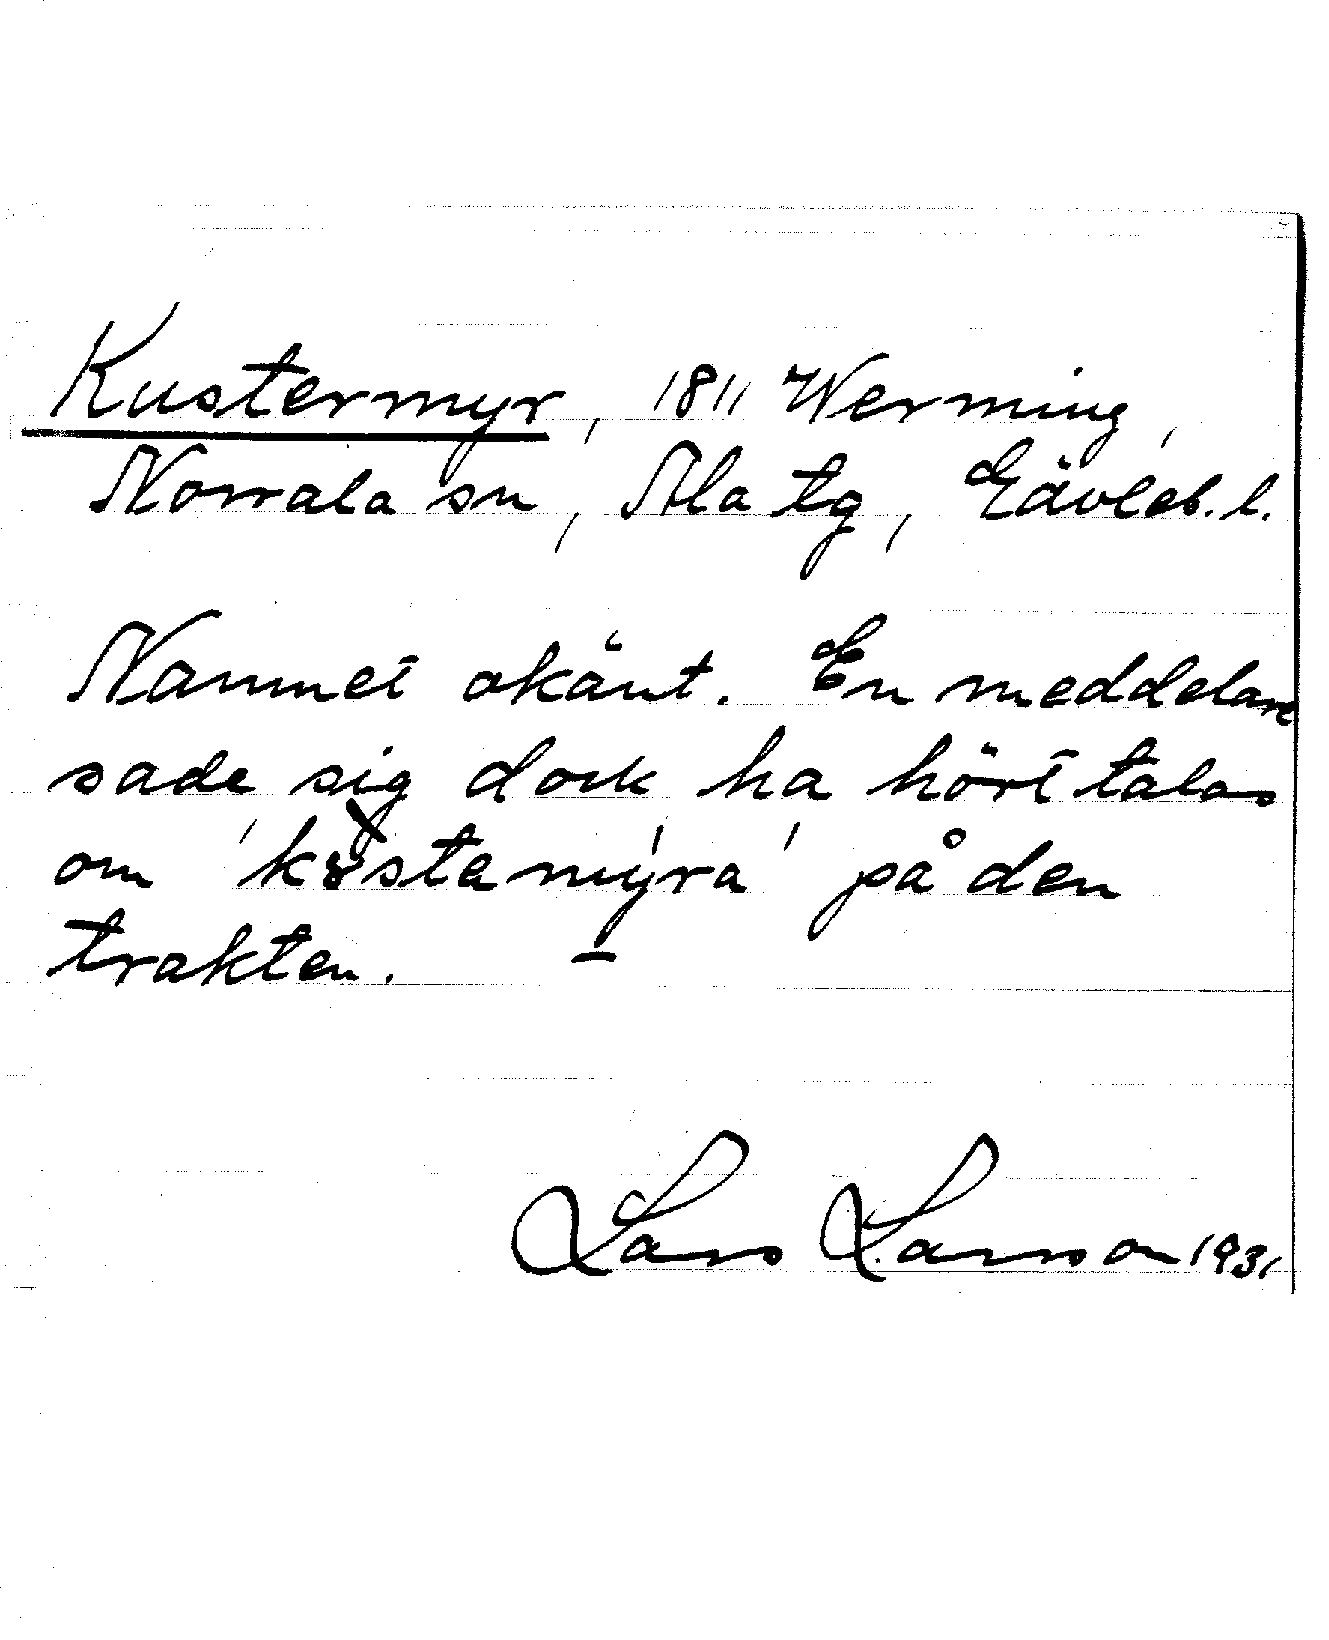 Kustermyr, 1811 Werming,
Norrala sn, Ala tg, Gävleb. l.
Namnet okänt. En meddelare
sade sig dock ha hört talas
om 'kòstemýra' på den
trakten. –
Lars Larsson 1931